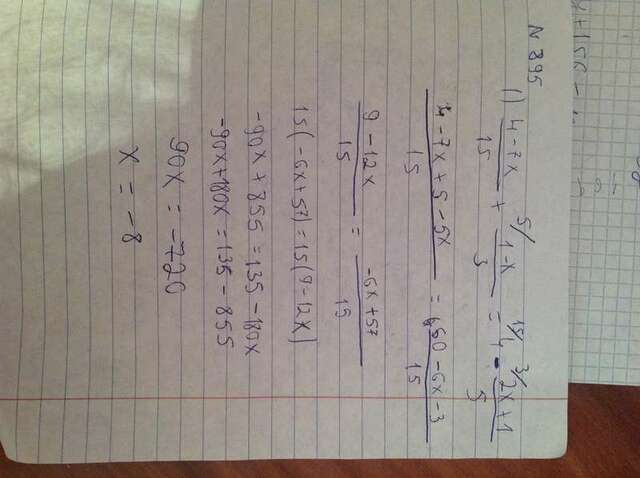 N 895
1) 4-7x/15 + 5/ 1-x/3 = 15/ 4 - 3/ 2x+1/5
4-7x+5-5x/15 = 60-6x-3/15
9-12x/15 = -6x+57/15
15(-6x+57)=15(9-12x)
-90x+855=135-180x
-90x+180x=135-855
90x = -720
x = -8